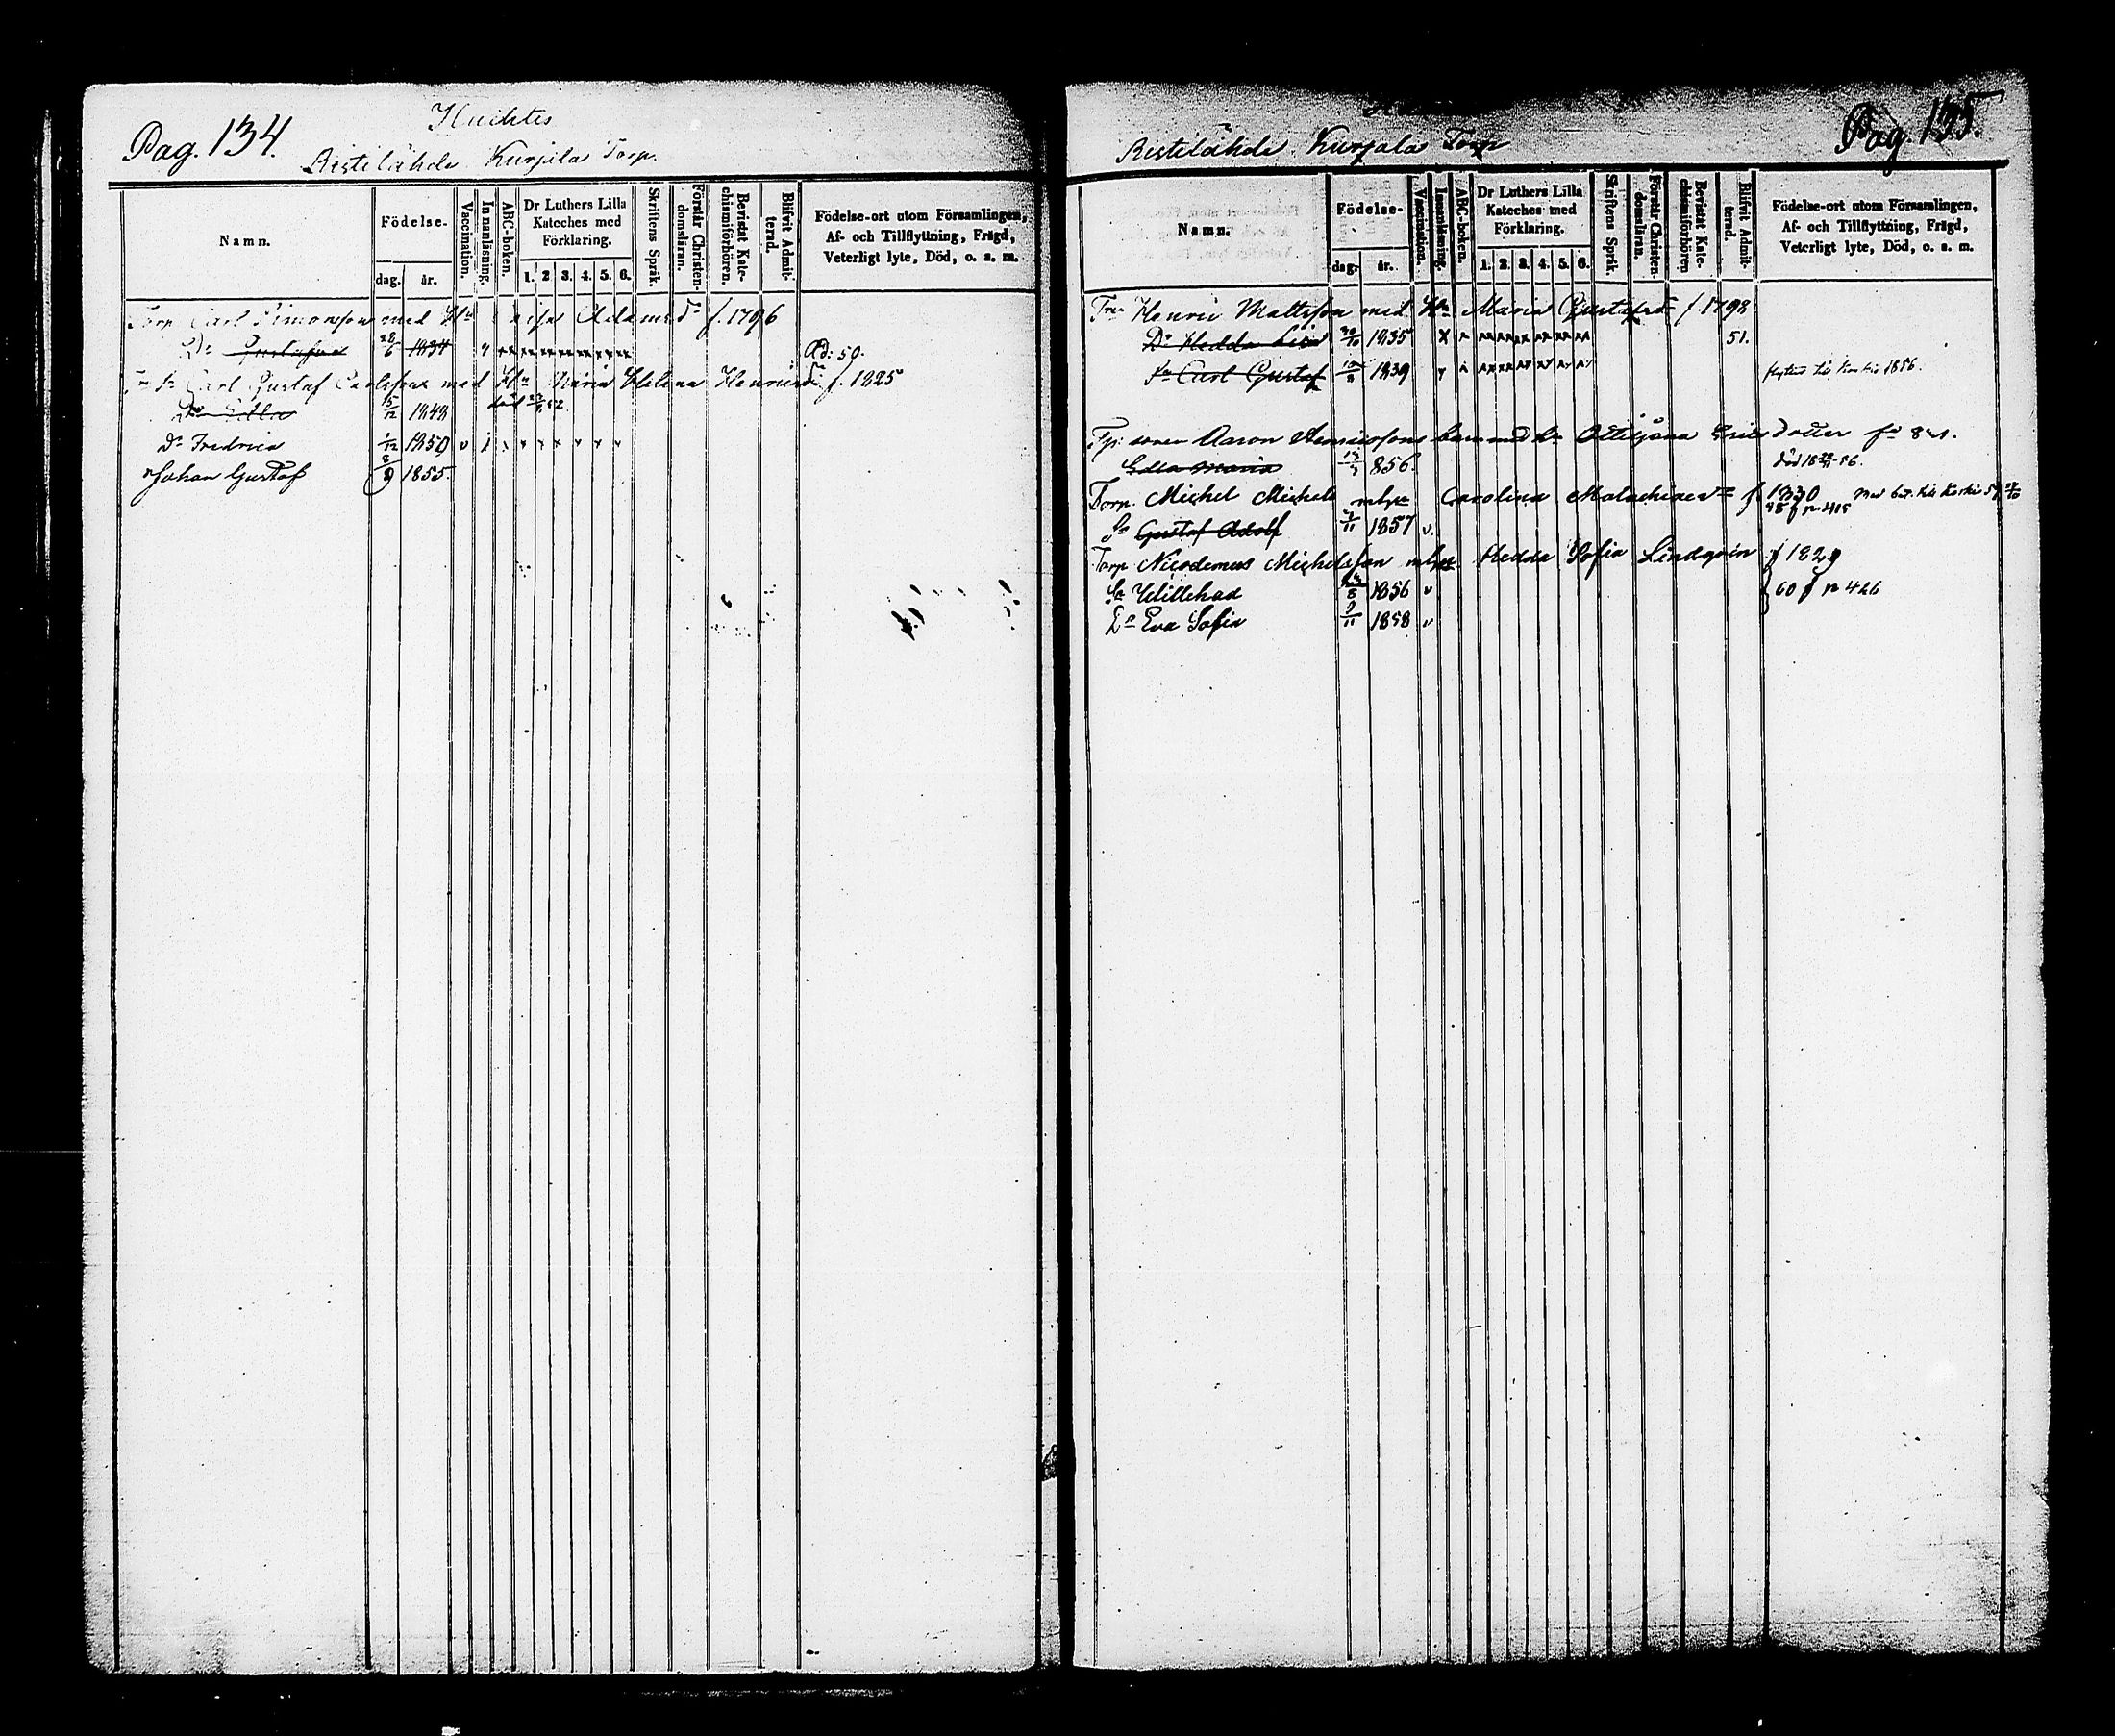 Pag. 134.
Huihtis
Ristilähde Kurjala Torp.
Namn.
Födelse-
dag. år.
Vaccination.
Innanläsning.
ABC-boken.
Dr Luthers Lilla Kateches med Förklaring.
1. 2 3. 4. 5. 6.
Skriftens Språk.
Förstår Christendomsläran.
Bevistat Katechismiförhören.
Blifvit Admitterad.
Födelse-ort utom Församlingen, Af- och Tillflyttning, Frägd, Veterligt lyte, Död, o. s. m.
Torp Carl Simonsson med Hu Caisa Adamsdr f. 1796
Dr Gustafva 28/6 1834 Ad: 50.
Carl Gustaf Carlsson med Hu Maria Helena Henricsdr f. 1825
Dr Ulla 15/12 1848 död 52
Dr Fredrica 1/12 1850
Johan Gustaf 8/9 1855.
Pag. 135.
Ristilähde Kurjala Torp
Namn.
Födelse-
dag. år.
Vaccination.
Innanläsning.
ABC-boken.
Dr Luthers Lilla Kateches med Förklaring.
1. 2. 3. 4. 5. 6.
Skriftens Språk.
Förstår Christendomsläran.
Bevistat Katechismiförhören
Blifvit Admitterad.
Födelse-ort utom Församlingen, Af- och Tillflyttning, Frägd, Veterligt lyte, Död, o. s. m.
Henric Mattsson med Hu Maria Gustafsdr f. 1798
Dr Hedda Lisa 30/10 1835 51.
Sn Carl Gustaf 1839 1856.
Aaron Henricssons med Ottiljana Erics dotter
Edla Maria 856. död
Torp. Michel Michels mhu Carolina Malachiaedr f. 1830
58 f. p. 415
Sn Gustaf Adolf 1857 v.
Torp Nicodemus Michelsson mhu Hedda Sofia Lindqvin f 1829
Sn Willehad 1856 v 60 f p 426
Dr Eva Sofia 9/11 1858 v